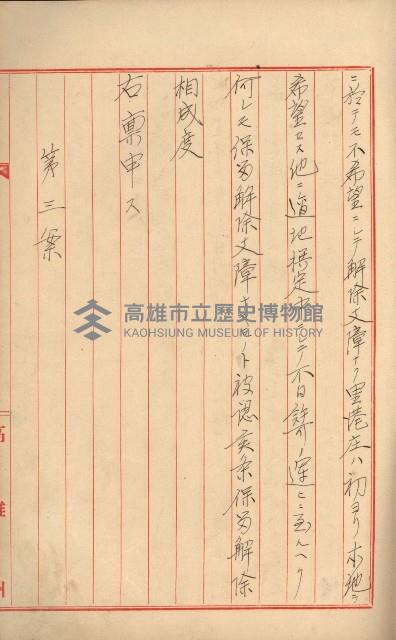 ニ於テモ不希望ニシテ解除支障ナク里港庄ハ初ヨリ本地ヲ
希望セス他ニ適地撰定セシニテ不日許可ノ運ヒニ至ルヘク
何レモ保留解除支障ナキモノト被認候条保留解除
相成度
右稟申ス
第三案
高雄州
高雄市立歷史博物館
KAOHSIUNG MUSEUM OF HISTORY